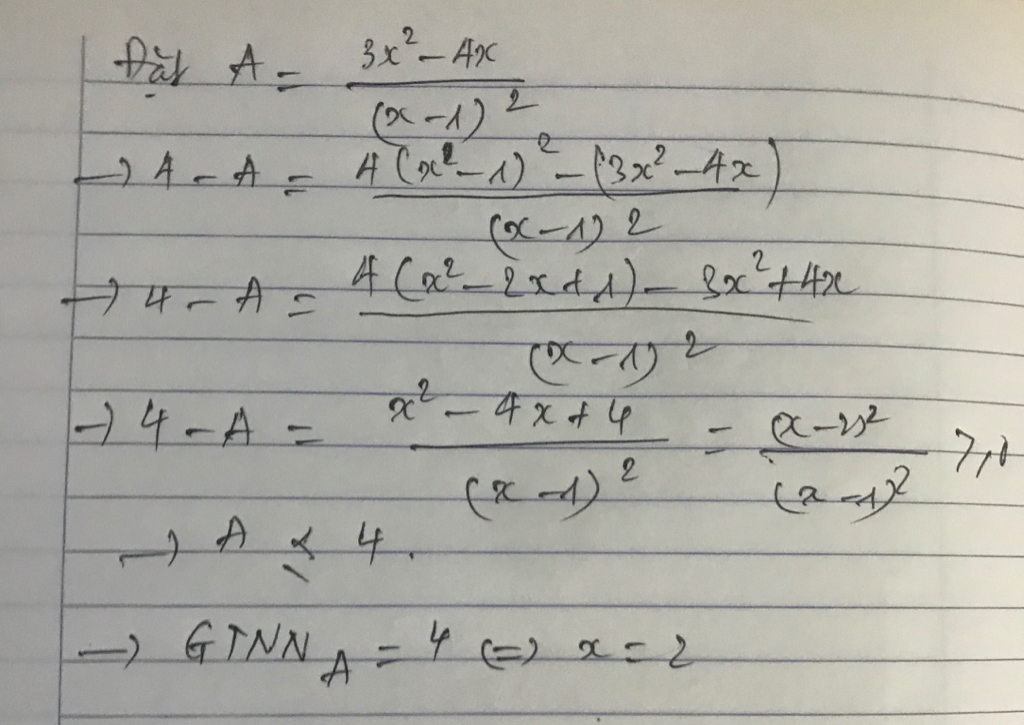 Đặt A = \frac{3x^2 - 4x}{(x-1)^2}
→ 4 - A = \frac{4(x^2-1)^2 - (3x^2-4x)}{(x-1)^2}
→ 4 - A = \frac{4(x^2-2x+1) - 3x^2+4x}{(x-1)^2}
→ 4 - A = \frac{x^2-4x+4}{(x-1)^2} = \frac{(x-2)^2}{(x-1)^2} ≥ 0
→ A ≤ 4.
→ GTNN_A = 4 (=) x = 2